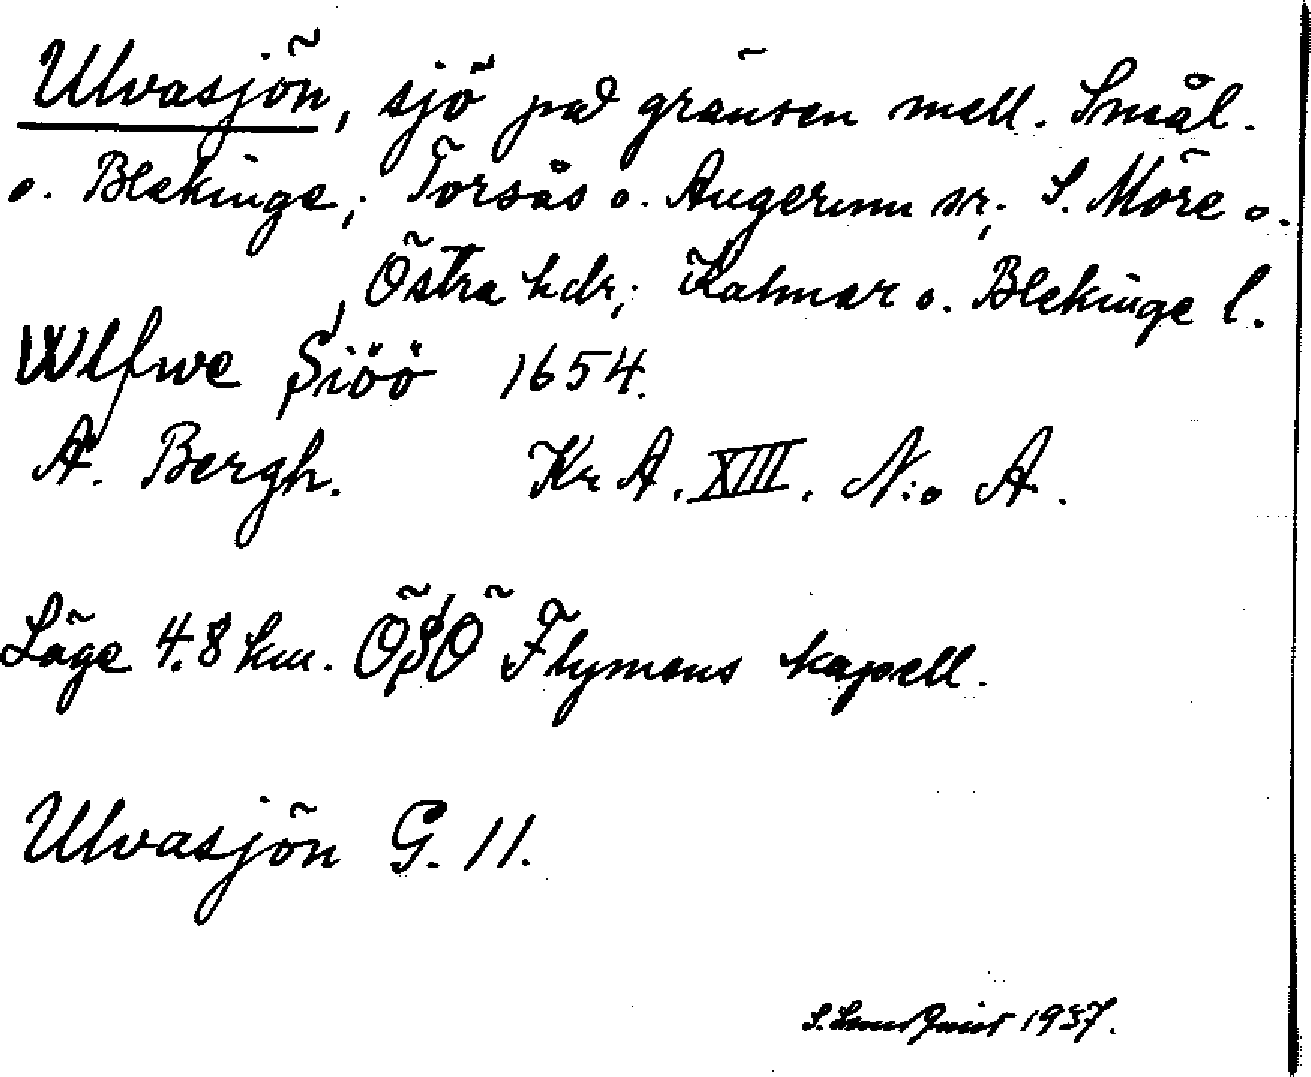 Ulvasjön, sjö på gränsen mell. Smål.
o. Blekinge; Torsås o. Augerum sn; S. Möre o.
Östra hdr; Kalmar o. Blekinge l.
Wlfwe Siöö 1654.
A. Bergh. Kr A. XIII. N:o A.
Läge 4.8 km. ÖSÖ Flymens kapell.
Ulvasjön G. 11.
1937.